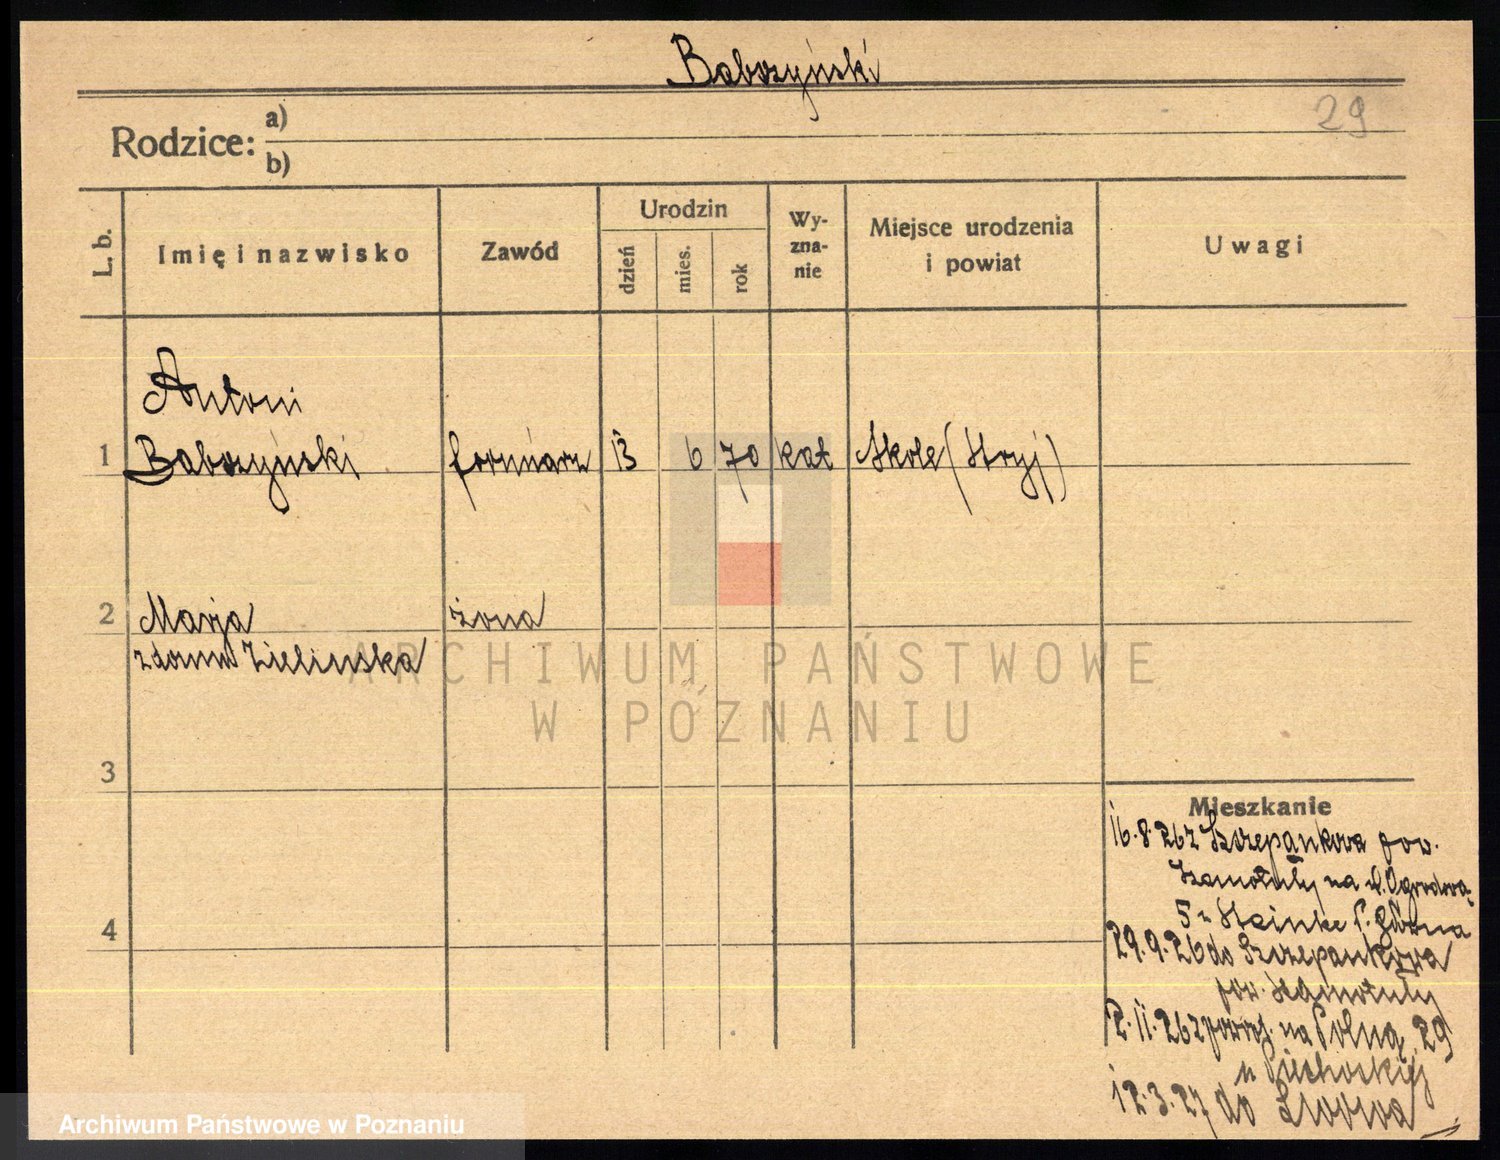 Babszyński
29
Rodzice: a)
b)
L. b.
Imię i nazwisko
Zawód
Urodzin
dzień
mies.
rok
Wy-
zna-
nie
Miejsce urodzenia
i powiat
Uwagi
Antoni
1 Babszyński formiarz 13 6 70 kat Skole (Stryj)
2 Marja żona
z domu Zielinska
ARCHIWUM PAŃSTWOWE
W POZNANIU
3
Mieszkanie
16.8.26 z Szczepankowa pow.
Szamotuły na ul. Ogrodową
5 u Steinke
4
29.9.26 do Szczepankowa
pow. Szamotuły
2.11.26 z powrot. na Polną 29
u
12.3.27 do Lwowa
Archiwum Państwowe w Poznaniu